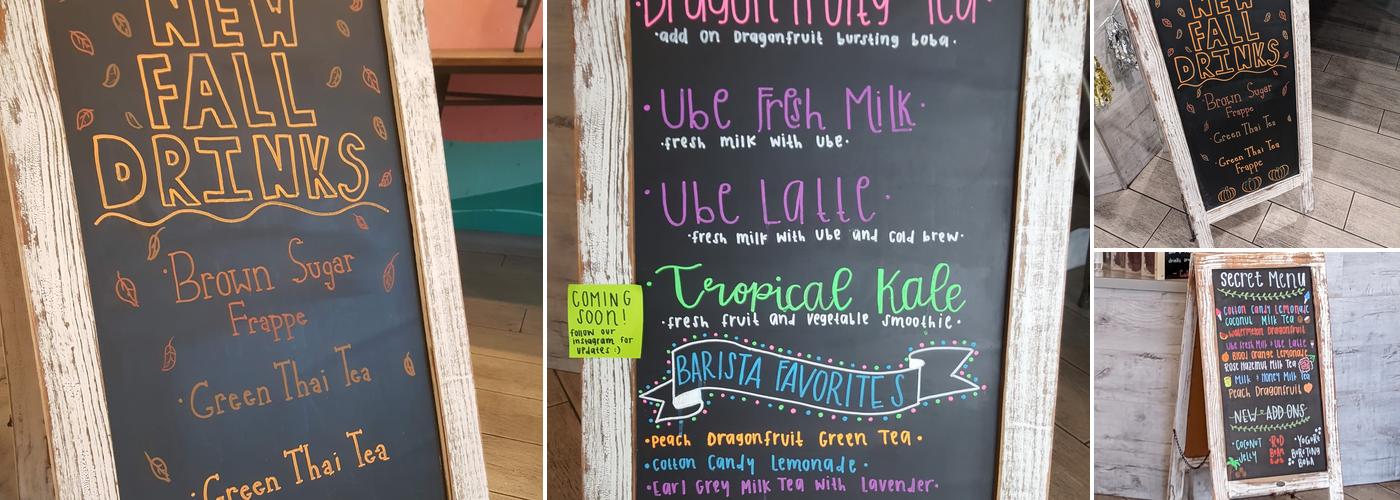 NEW
FALL
DRINKS
Brown Sugar
Frappe
Green Thai Tea
Green Thai Tea
Dragonfruity Tea
add on Dragonfruit bursting boba
Ube Fresh Milk
fresh milk with ube
Ube Latte
fresh milk with ube and cold brew
Tropical Kale
fresh fruit and vegetable smoothie
COMING
SOON!
follow our
instagram for
updates :)
BARISTA FAVORITES
Peach Dragonfruit Green Tea
Cotton Candy Lemonade
Earl Grey Milk Tea with Lavender
NEW
FALL
DRINKS
Brown Sugar
Frappe
Green Thai Tea
Green Thai Tea
Frappe
Secret Menu
Cotton Candy Lemonade
Coconut Milk Tea
Watermelon Dragonfruit
Ube Fresh Milk & Ube Latte
Blood Orange Lemonade
Rose Hazelnut Milk Tea
Milk & Honey Milk Tea
Peach Dragonfruit
NEW ADD ONS
Coconut
Jelly
Red
Bean
Yogurt
Bursting
Boba